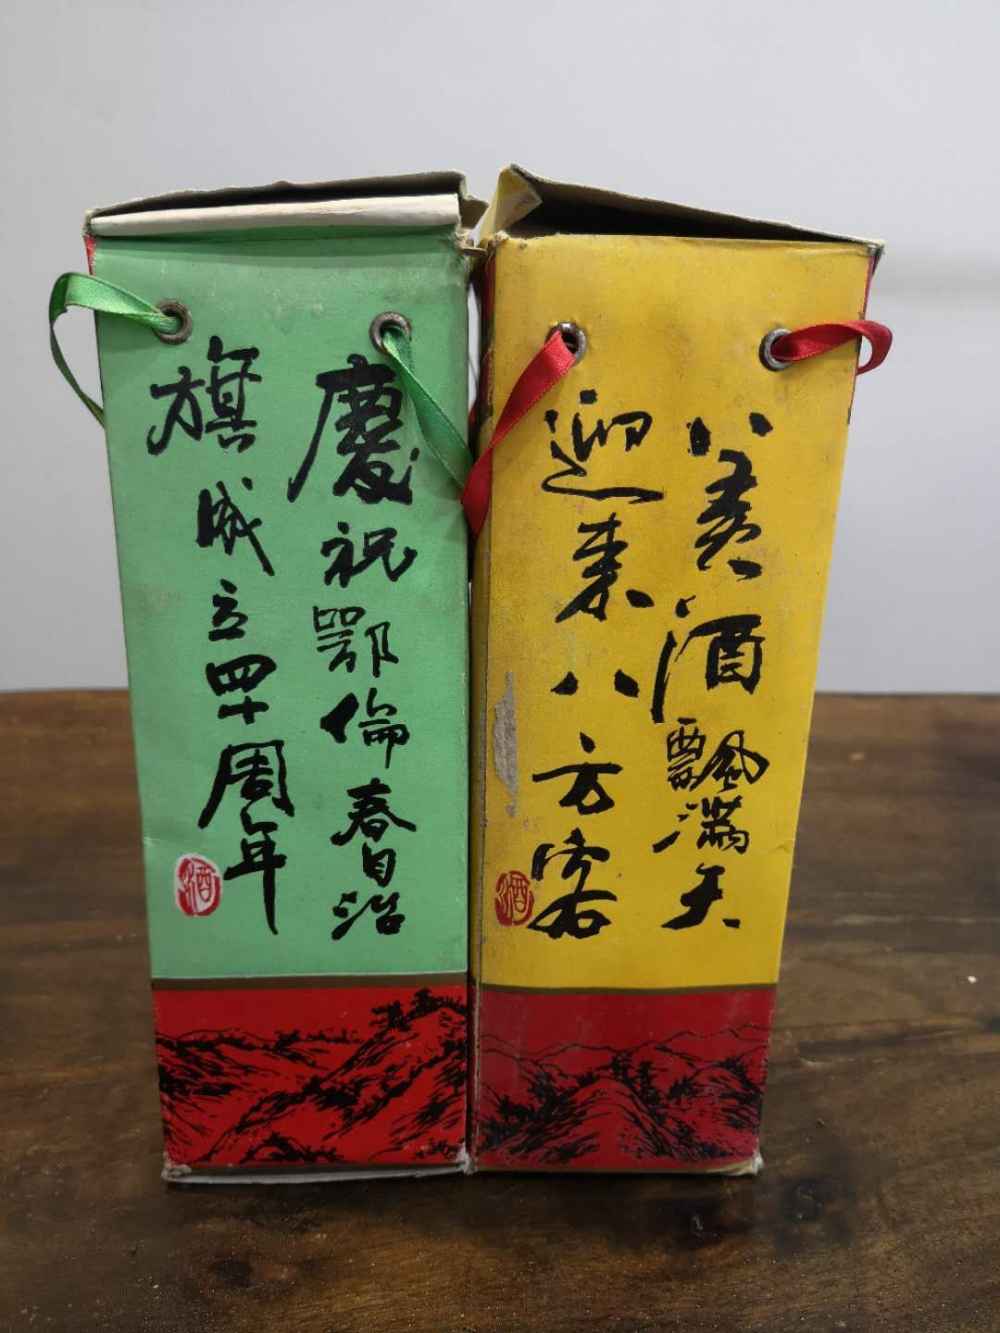 慶祝鄂倫春自治
旗成立四十周年
酒
八美酒飄满天
迎来八方客
酒